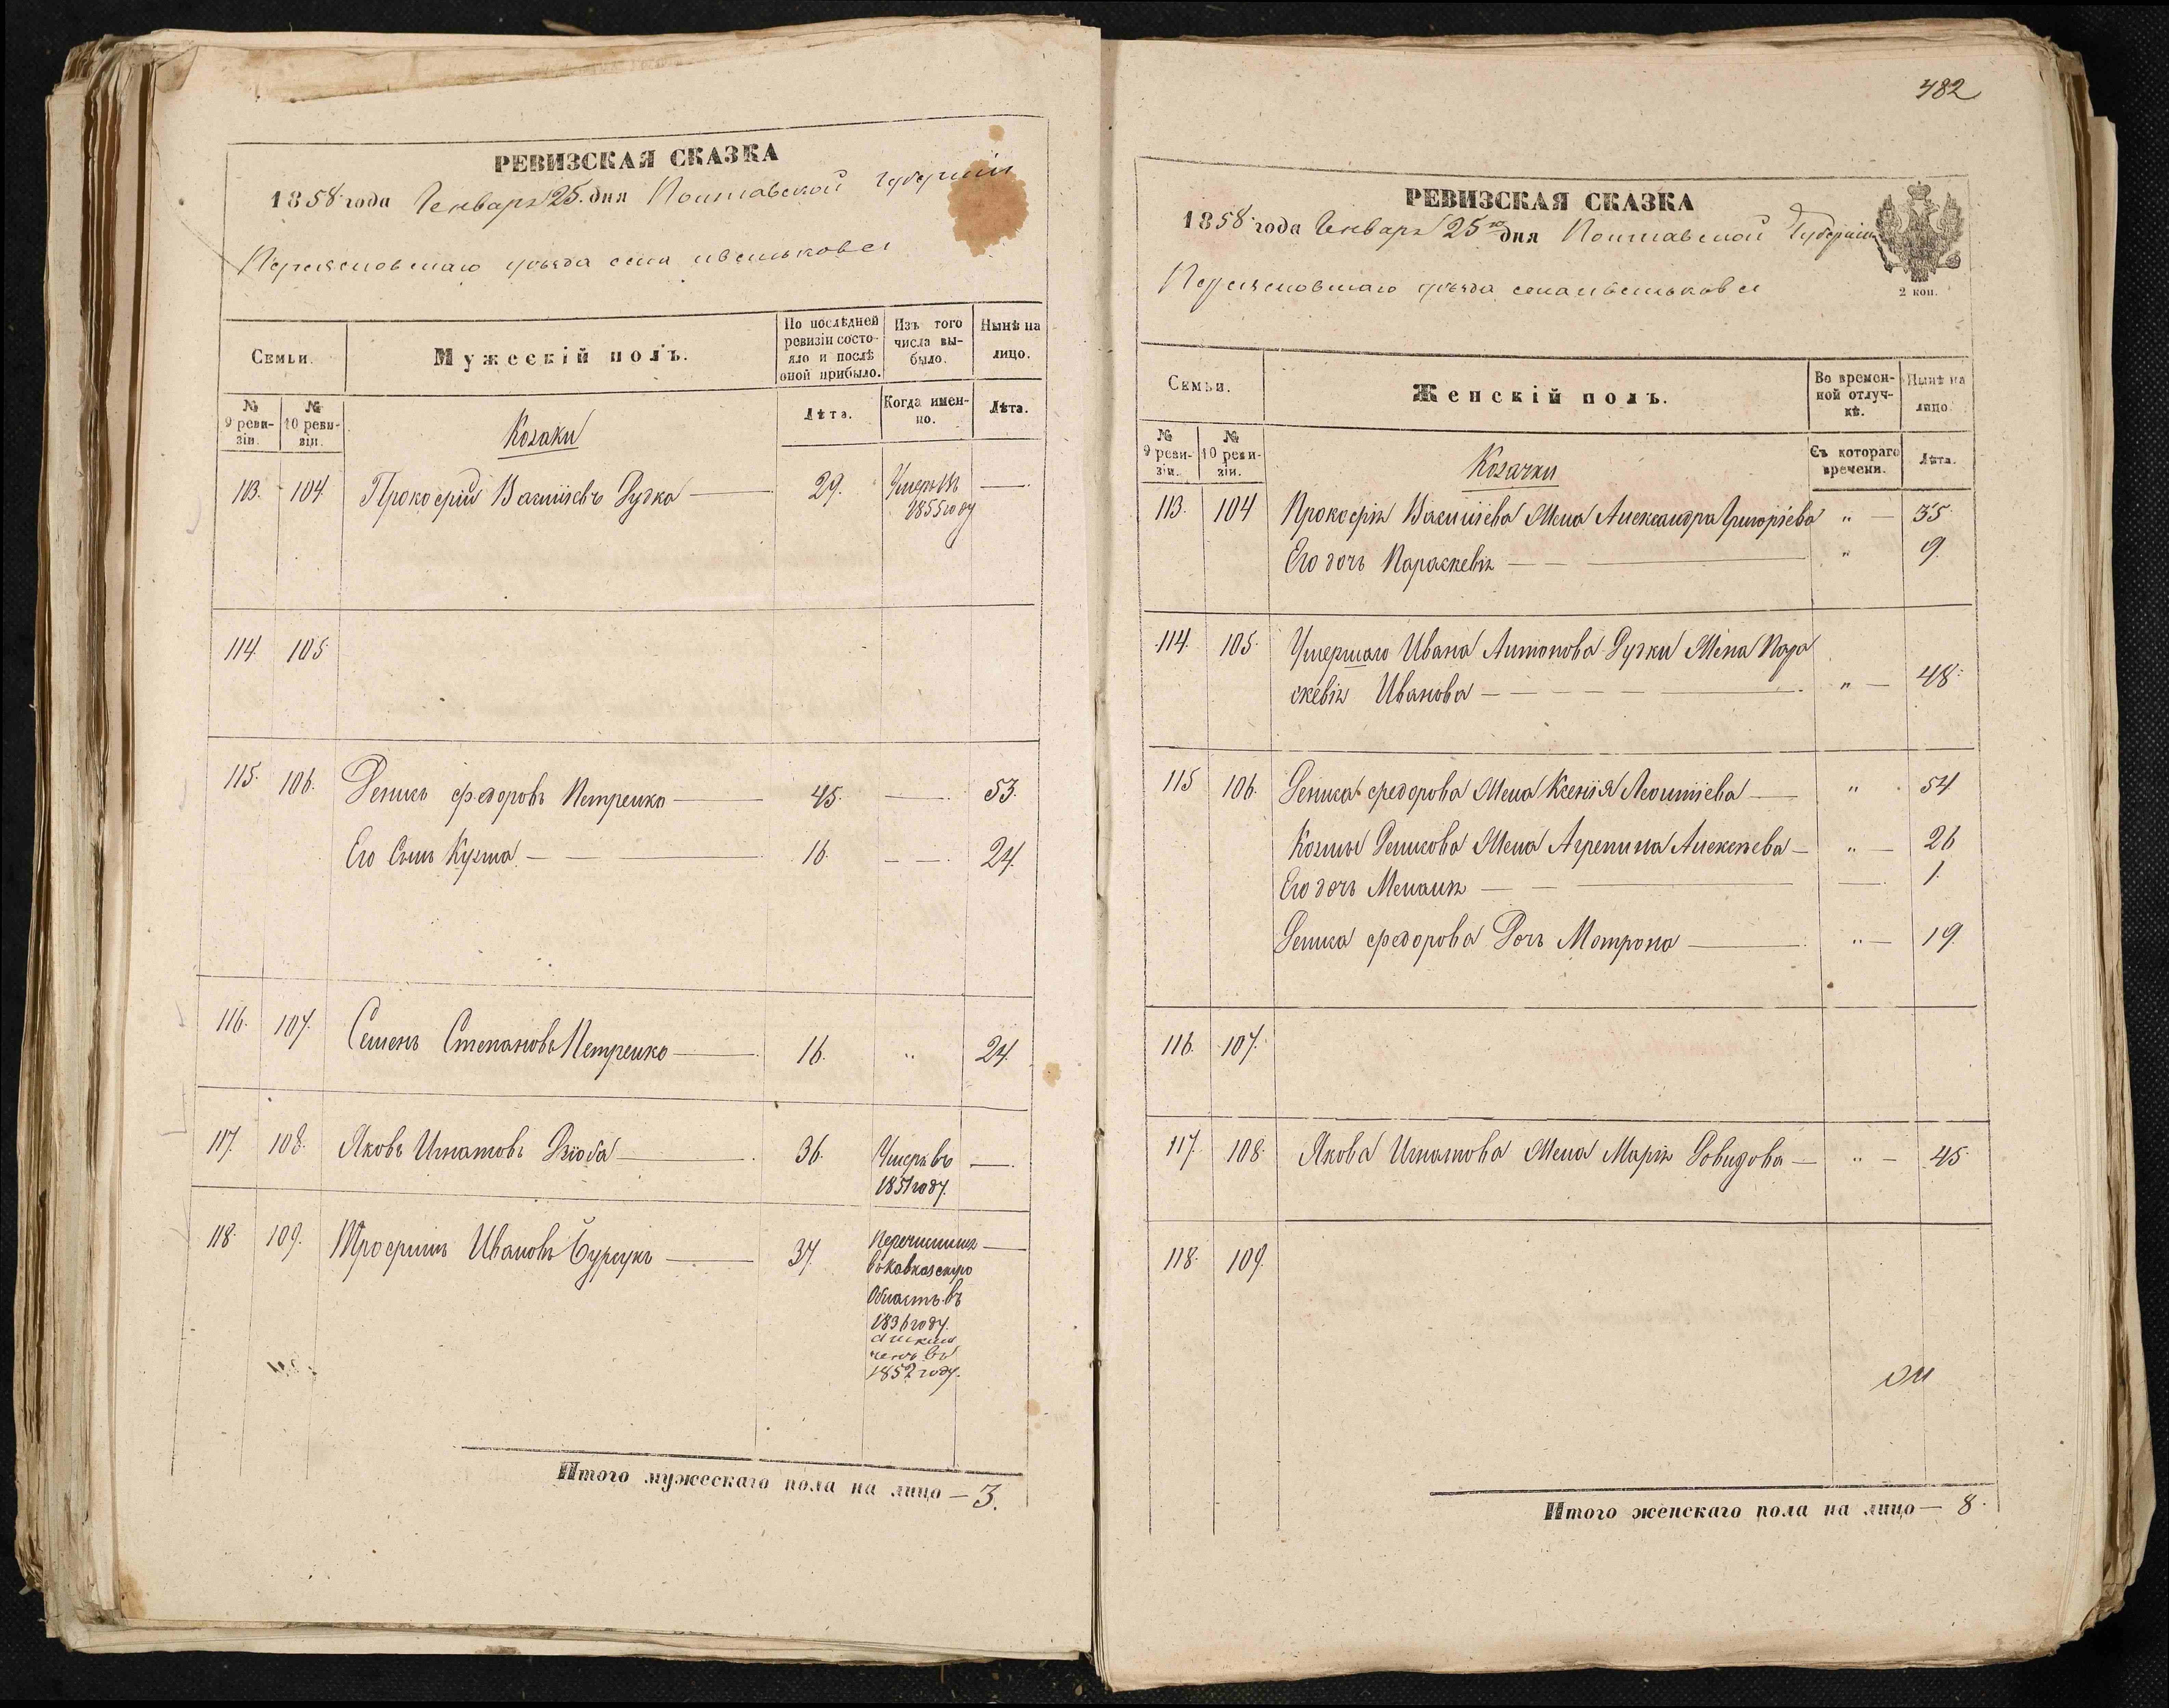 РЕВИЗСКАЯ СКАЗКА
1858 года Генваря 25. дня Полтавской губерніи
Переясловскаго уѣзда села
Семьи.
Мужескій полъ.
По послѣдней ревизіи состояло и послѣ оной прибыло.
Изъ того числа выбыло.
Нынѣ на лицо.
№ 9 ревизіи.
№ 10 ревизіи.
Козаки
Лѣта.
Когда именно.
Лѣта.
113. 104 Прокофій Васильевъ Дудка 29. Умеръ въ
1855 году
114. 105
115. 106. Федоровъ Петренко 45. 53.
Его Сынъ Кузма 16. 24.
116. 107. Семенъ Степановъ Петренко 16. " 24.
117. 108. Яковъ Игнатовъ Дзюба 36. Умеръ въ
1851 году.
118. 109. Трофимъ Ивановъ 37. Перечисленъ
въ Кавказскую
Область въ
1836 году.
1852 году.
Итого мужескаго пола на лицо — 3.
482
РЕВИЗСКАЯ СКАЗКА
1858 года Генваря 25 го дня Полтавской Губерніи
2 коп.
Переясловскаго уѣзда села
Семьи.
Женскій полъ.
Во временной отлучкѣ.
Нынѣ на лицо.
№ 9 ревизіи.
№ 10 ревизіи.
Козачки
Съ котораго времени.
Лѣта.
113. 104 Прокофія Васильева Жена Александра Григоріева " 35
Его дочь Параскевія " 9.
114. 105. Умершаго Ивана Антонова Дудки Жена Пара
скевія Иванова " 48.
115 106. Федорова Жена Ксенія Леонтіева " 54
Козмы Жена Агрепина Алексѣева " 26
Его дочь Меланія 1.
Федорова Дочь Мотрона " 19.
116. 107.
117. 108. Якова Игнатова Жена Марія Довидова " 45
118. 109.
Итого женскаго пола на лицо — 8.